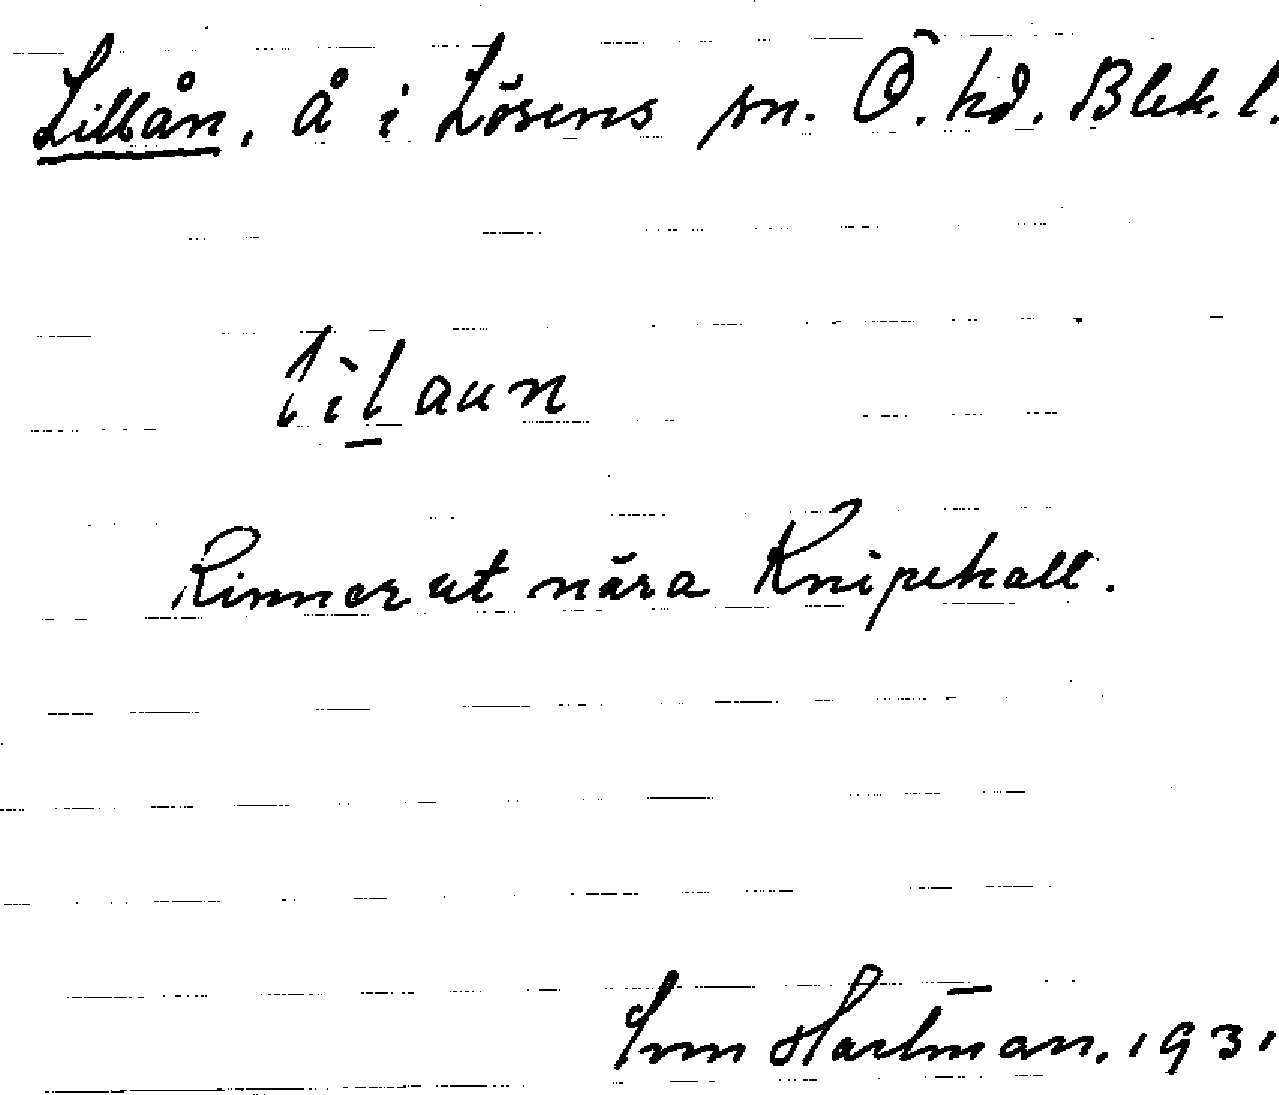 Lillån, å i Lösens sn. Ö. hd. Blek. l.
lìl̲aun
Rinner ut nära Knipehall.
Hartman. 1931